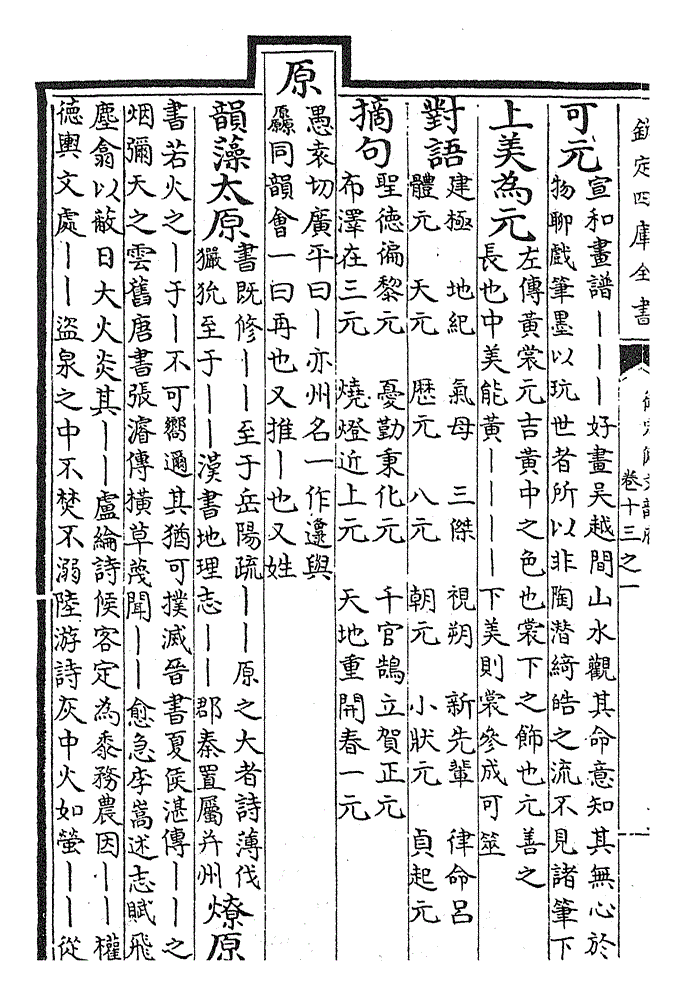 欽定四庫全書
卷十三之一
可元
宣和畫譜｜｜｜好畫吳越間山水觀其命意知其無心於
物聊戲筆墨以玩世者所以非陶潛綺皓之流不見諸筆下
上美為元
左傳黃裳元吉黃中之色也裳下之飾也元善之
長也中美能黃｜｜｜｜下美則裳參成可筮
對語
建極　地紀　氣母　三傑　視朔　新先輩　律命呂
體元　天元　歷元　八元　朝元　小狀元　貞起元
摘句
聖德徧黎元　憂勤秉化元　千官鵠立賀正元
布澤在三元　燒燈近上元　天地重開春一元
原
愚袁切廣平曰｜亦州名一作邍與
厵同韻會一曰再也又推｜也又姓
韻藻太原
書既修｜｜至于岳陽疏｜｜原之大者詩薄伐
玁狁至于｜｜漢書地理志｜｜郡秦置屬并州
燎原
書若火之｜于｜不可嚮邇其猶可撲滅晉書夏侯湛傳｜｜之
烟彌天之雲舊唐書張濬傳橫草蔑聞｜｜愈急李嵩述志賦飛
塵翕以蔽日大火炎其｜｜盧綸詩候客定為黍務農因｜｜權
德輿文處｜｜盜泉之中不焚不溺陸游詩灰中火如螢｜｜從